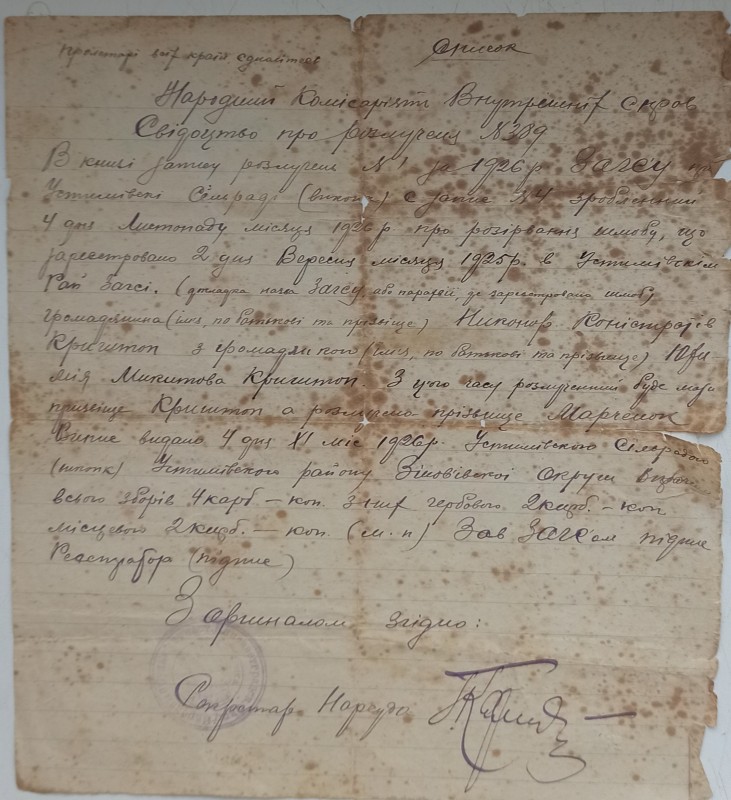 Пролетарі всіх країн єднайтеся
Список
Народний Комісаріят Внутрешніх Справ
Свідоцтво про розлучення N 309
В книзі запису розлучень N 1 за 1926 р Загсу при
Устимівскі Сілраді (виконк) є запис N 4 зроблений
4 дня Листопаду місяця 1926 р про розірвання шлюбу, що
зареєстровано 2 дня Вересня місяця 1925 р. в Устимівскім
Рай Загсі. (докладна назва Загсу або парафії, де зареєстровано шлюб)
громадянина (імя, по батькові та прізвище) Никонор
Криштоп з громадянкою (імя, по батькові та прізвище) Юхи-
мія Микитова Криштоп. З цього часу розлученний буде мати
прізвіще Криштоп а розлучена прізвище Марченок
Випис видано 4 дня XI міс 1926 р. Устимівского Сілради
(виконк) Устимівского району Зіновівскої Округи
всього зборів 4 карб — коп. з них гербового 2 карб. — коп
місцевого 2 карб. — коп. (м. п) Зав Загс'ом підпис
Реєстратора (підпис)
З оригіналом згідно:
Секретар Нарсуду